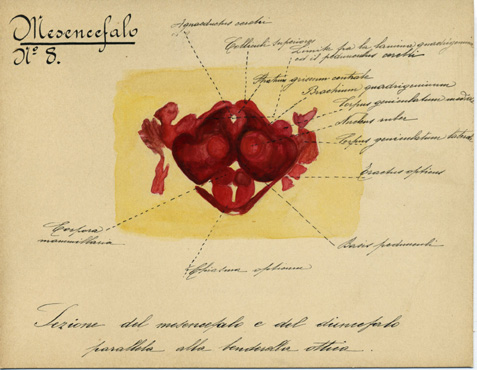 Mesencefalo
Nº 8.
Aquaeductus cerebri
Colliculi superiores
Limite fra la lamina quadrigemina
ed il pedunculus cerebri
Stratum griseum centrale
Brachium quadrigeminum
Corpus geniculatum mediale
Nucleus ruber
Corpus geniculatum laterale
Tractus opticus
Corpora
mammillaria
Basis pedunculi
Chiasma opticum
Sezione del mesencefalo e del diencefalo
parallela alla benderella ottica.